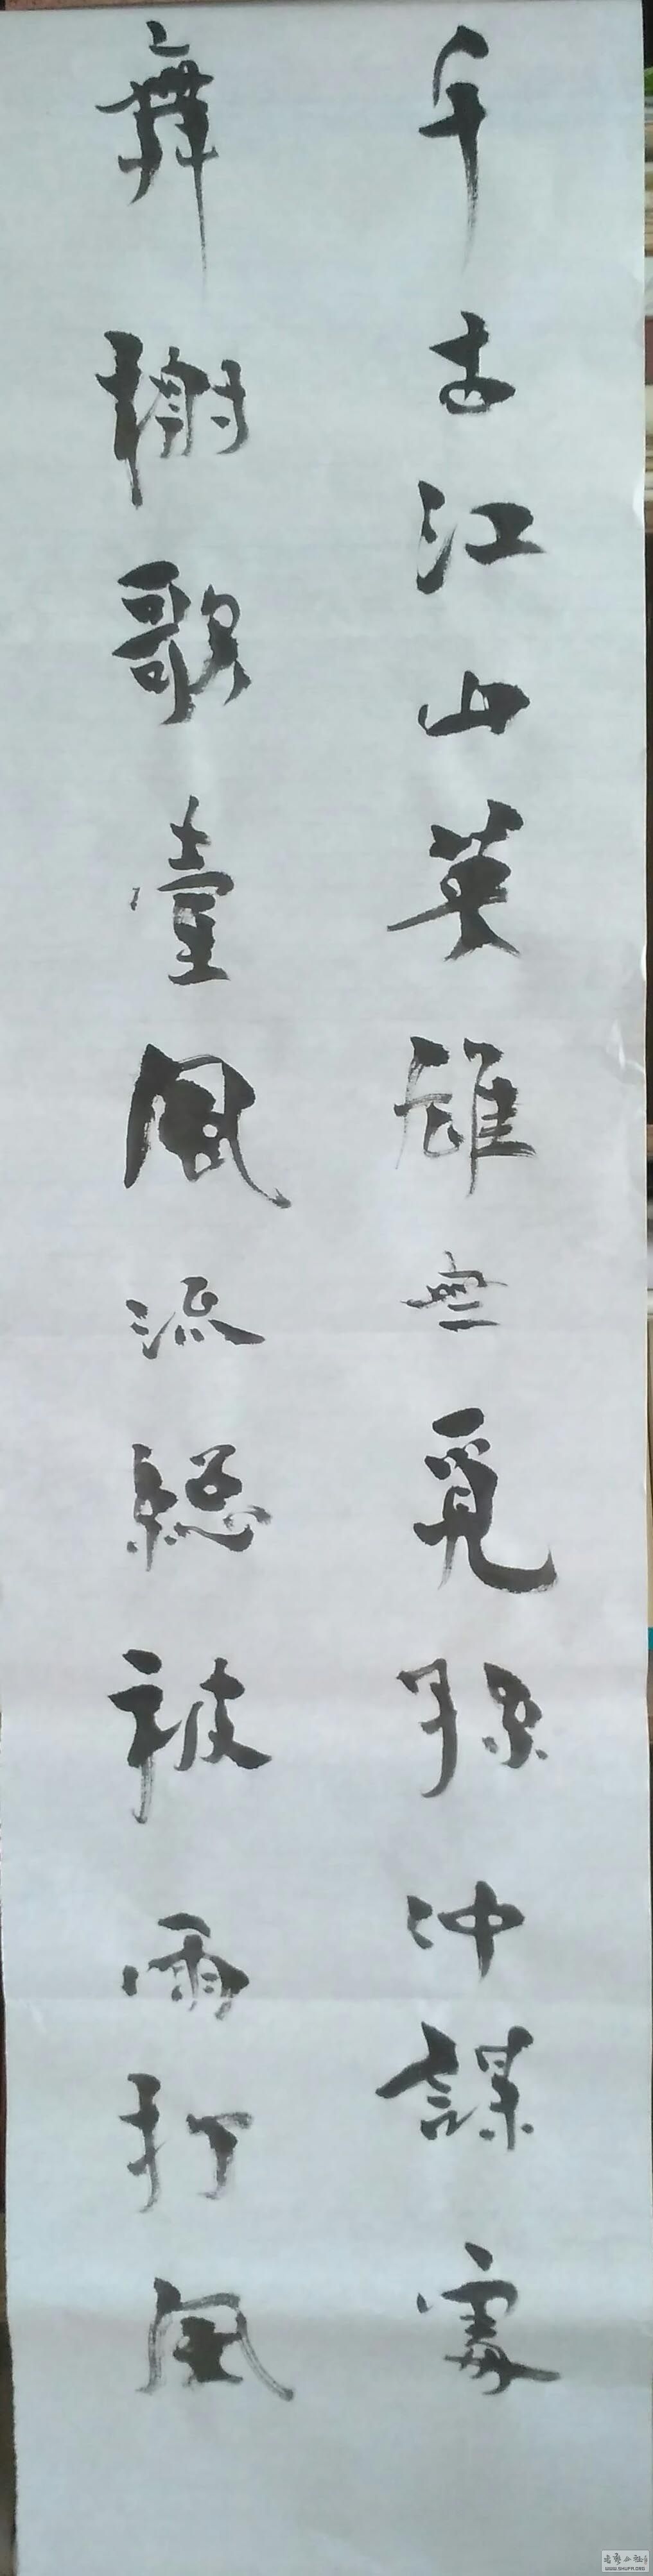 千古江山英雄無覓孫沖謀處
舞榭歌臺風流總被雨打風
WWW.SHUFA.ORG